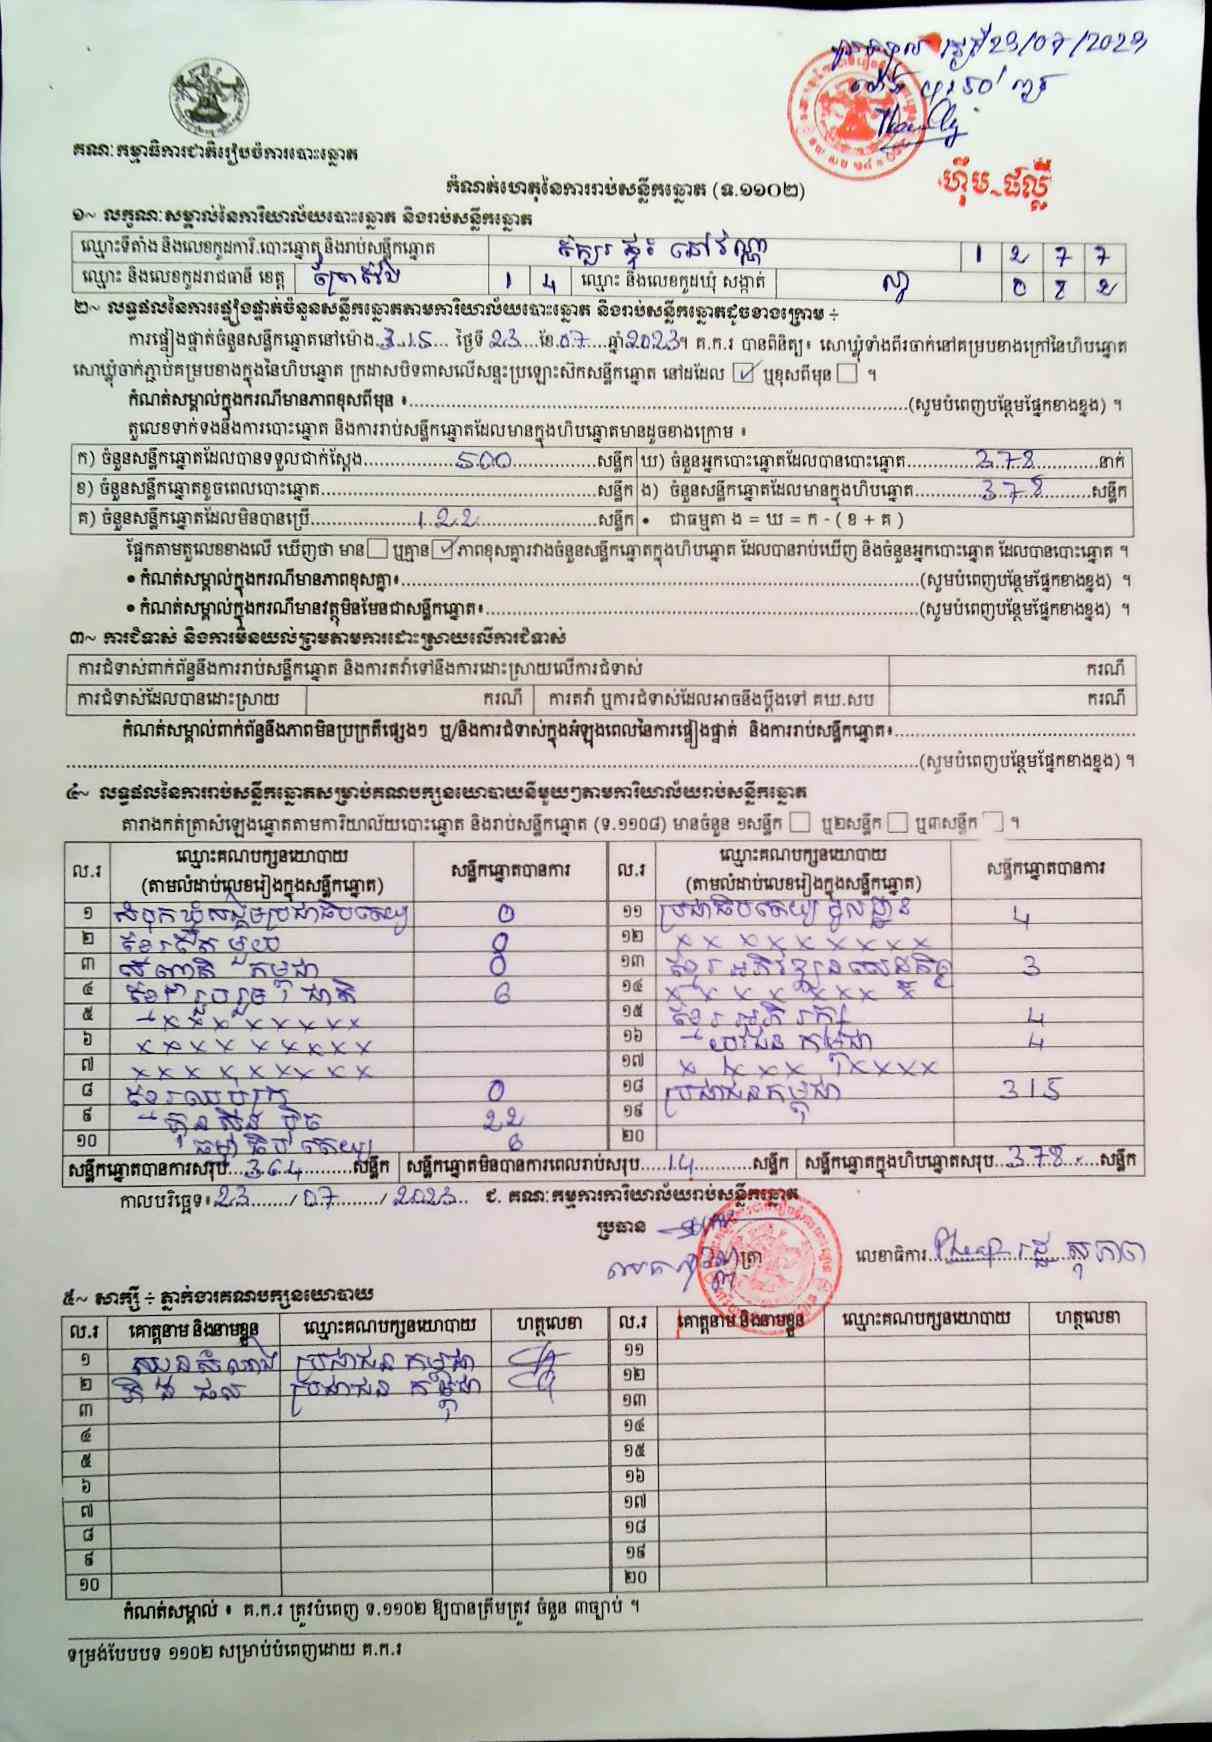 គណៈកម្មាធិការជាតិរៀបចំការបោះឆ្នោត
23/07/2023
ហ៊ឹប ផល្លី
កំណត់ហេតុនៃការរាប់សន្លឹកឆ្នោត (ទ.១១០២)
១~ លក្ខណៈសម្គាល់នៃការិយាល័យបោះឆ្នោត និងរាប់សន្លឹកឆ្នោត
ឈ្មោះទីតាំង និងលេខកូដការិ.បោះឆ្នោត និងរាប់សន្លឹកឆ្នោត 1 2 7 7
ឈ្មោះ និងលេខកូដរាជធានី ខេត្ត ព្រៃវែង 1 4 ឈ្មោះ និងលេខកូដឃុំ សង្កាត់ 0 8 2
២~ លទ្ធផលនៃការផ្ទៀងផ្ទាត់ចំនួនសន្លឹកឆ្នោតតាមការិយាល័យបោះឆ្នោត និងរាប់សន្លឹកឆ្នោតដូចខាងក្រោម ៖
ការផ្ទៀងផ្ទាត់ចំនួនសន្លឹកឆ្នោតនៅម៉ោង 3.15 ថ្ងៃទី 23 ខែ 07 ឆ្នាំ 2023 ។ គ.ក.រ បានពិនិត្យ៖ សោឃ្លុំទាំងពីរចាក់នៅគម្របខាងក្រៅនៃហិបឆ្នោត
សោឃ្លុំចាក់ភ្ជាប់គម្របខាងក្នុងនៃហិបឆ្នោត ក្រដាសបិទពាសលើសន្ទះប្រឡោះស៊កសន្លឹកឆ្នោត នៅដដែល ☑ ឬខុសពីមុន ☐ ។
កំណត់សម្គាល់ក្នុងករណីមានភាពខុសពីមុន ៖ (សូមបំពេញបន្ថែមផ្នែកខាងខ្នង) ។
តួលេខទាក់ទងនឹងការបោះឆ្នោត និងការរាប់សន្លឹកឆ្នោតដែលមានក្នុងហិបឆ្នោតមានដូចខាងក្រោម ៖
ក) ចំនួនសន្លឹកឆ្នោតដែលបានទទួលជាក់ស្តែង 500 សន្លឹក ឃ) ចំនួនអ្នកបោះឆ្នោតដែលបានបោះឆ្នោត 378 នាក់
ខ) ចំនួនសន្លឹកឆ្នោតខូចពេលបោះឆ្នោត សន្លឹក ង) ចំនួនសន្លឹកឆ្នោតដែលមានក្នុងហិបឆ្នោត 378 សន្លឹក
គ) ចំនួនសន្លឹកឆ្នោតដែលមិនបានប្រើ 122 សន្លឹក • ជាធម្មតា ង = ឃ = ក - ( ខ + គ )
ផ្អែកតាមតួលេខខាងលើ ឃើញថា មាន ☐ ឬគ្មាន ☑ ភាពខុសគ្នារវាងចំនួនសន្លឹកឆ្នោតក្នុងហិបឆ្នោត ដែលបានរាប់ឃើញ និងចំនួនអ្នកបោះឆ្នោត ដែលបានបោះឆ្នោត ។
• កំណត់សម្គាល់ក្នុងករណីមានភាពខុសគ្នា៖ (សូមបំពេញបន្ថែមផ្នែកខាងខ្នង) ។
• កំណត់សម្គាល់ក្នុងករណីមានវត្ថុមិនមែនជាសន្លឹកឆ្នោត៖ (សូមបំពេញបន្ថែមផ្នែកខាងខ្នង) ។
៣~ ការជំទាស់ និងការមិនយល់ព្រមតាមការដោះស្រាយលើការជំទាស់
ការជំទាស់ពាក់ព័ន្ធនឹងការរាប់សន្លឹកឆ្នោត និងការតវ៉ាទៅនឹងការដោះស្រាយលើការជំទាស់ ករណី
ការជំទាស់ដែលបានដោះស្រាយ ករណី ការតវ៉ា ឬការជំទាស់ដែលអាចនឹងប្តឹងទៅ គឃ.សប ករណី
កំណត់សម្គាល់ពាក់ព័ន្ធនឹងភាពមិនប្រក្រតីផ្សេងៗ ឬ/និងការជំទាស់ក្នុងអំឡុងពេលនៃការផ្ទៀងផ្ទាត់ និងការរាប់សន្លឹកឆ្នោត៖
(សូមបំពេញបន្ថែមផ្នែកខាងខ្នង) ។
៤~ លទ្ធផលនៃការរាប់សន្លឹកឆ្នោតសម្រាប់គណបក្សនយោបាយនីមួយៗតាមការិយាល័យរាប់សន្លឹកឆ្នោត
តារាងកត់ត្រាសំឡេងឆ្នោតតាមការិយាល័យបោះឆ្នោត និងរាប់សន្លឹកឆ្នោត (ទ.១១០៨) មានចំនួន ១សន្លឹក ☐ ឬ២សន្លឹក ☐ ឬ៣សន្លឹក ☐ ។
ល.រ ឈ្មោះគណបក្សនយោបាយ (តាមលំដាប់លេខរៀងក្នុងសន្លឹកឆ្នោត) សន្លឹកឆ្នោតបានការ ល.រ ឈ្មោះគណបក្សនយោបាយ (តាមលំដាប់លេខរៀងក្នុងសន្លឹកឆ្នោត) សន្លឹកឆ្នោតបានការ
១ សំបុកឃ្មុំសង្គមប្រជាធិបតេយ្យ 0 ១១ ប្រជាធិបតេយ្យមូលដ្ឋាន 4
២ ខ្មែរតែមួយ 0 ១២ x x x x x x x x x
៣ ជំនាតិ កម្ពុជា 0 ១៣ ខ្មែរអភិវឌ្ឍន៍សេដ្ឋកិច្ច 3
៤ ខ្មែររួបរួមជាតិ 6 ១៤ x x x x x x x x
៥ x x x x x x x x ១៥ ខ្មែរអភិរក្ស 4
៦ x x x x x x x x x ១៦ យុវជនកម្ពុជា 4
៧ x x x x x x x x x ១៧ x x x x x x x x
៨ ខ្មែរឈប់ក្រ 0 ១៨ ប្រជាជនកម្ពុជា 315
៩ ហ៊្វុនស៊ិនប៉ិច 22 ១៩
១០ ធម្មាធិបតេយ្យ 6 ២០
សន្លឹកឆ្នោតបានការសរុប 364 សន្លឹក សន្លឹកឆ្នោតមិនបានការពេលរាប់សរុប 14 សន្លឹក សន្លឹកឆ្នោតក្នុងហិបឆ្នោតសរុប 378 សន្លឹក
កាលបរិច្ឆេទ៖ 23 / 07 / 2023 ជ. គណៈកម្មការការិយាល័យរាប់សន្លឹកឆ្នោត
ប្រធាន
ត្រា លេខាធិការ
៥~ សាក្សី ÷ ភ្នាក់ងារគណបក្សនយោបាយ
ល.រ គោត្តនាម និងនាមខ្លួន ឈ្មោះគណបក្សនយោបាយ ហត្ថលេខា ល.រ គោត្តនាម និងនាមខ្លួន ឈ្មោះគណបក្សនយោបាយ ហត្ថលេខា
១ ប្រជាជនកម្ពុជា ១១
២ ប្រជាជនកម្ពុជា ១២
៣ ១៣
៤ ១៤
៥ ១៥
៦ ១៦
៧ ១៧
៨ ១៨
៩ ១៩
១០ ២០
កំណត់សម្គាល់ ៖ គ.ក.រ ត្រូវបំពេញ ទ.១១០២ ឱ្យបានត្រឹមត្រូវ ចំនួន ៣ច្បាប់ ។
ទម្រង់បែបបទ ១១០២ សម្រាប់បំពេញដោយ គ.ក.រ